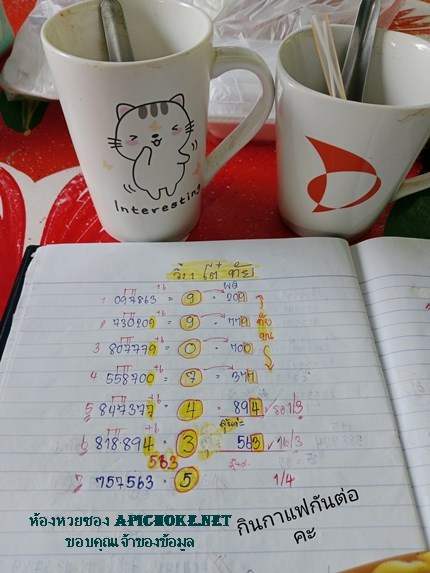 Interesting
วิ่ง โต๊ด
+6
1 097863 = 9 · 209
2 730209 = 9 · 779
3 807779 = 0 · 700
4 558700 = 7 · 377
5 847377 = 4 · 894
6 818894 · 3 563
563
7 757563 · 5 1/4
กินกาแฟกันต่อ
คะ
ห้องหวยซอง APICHOKE.NET
ขอบคุณเจ้าของข้อมูล